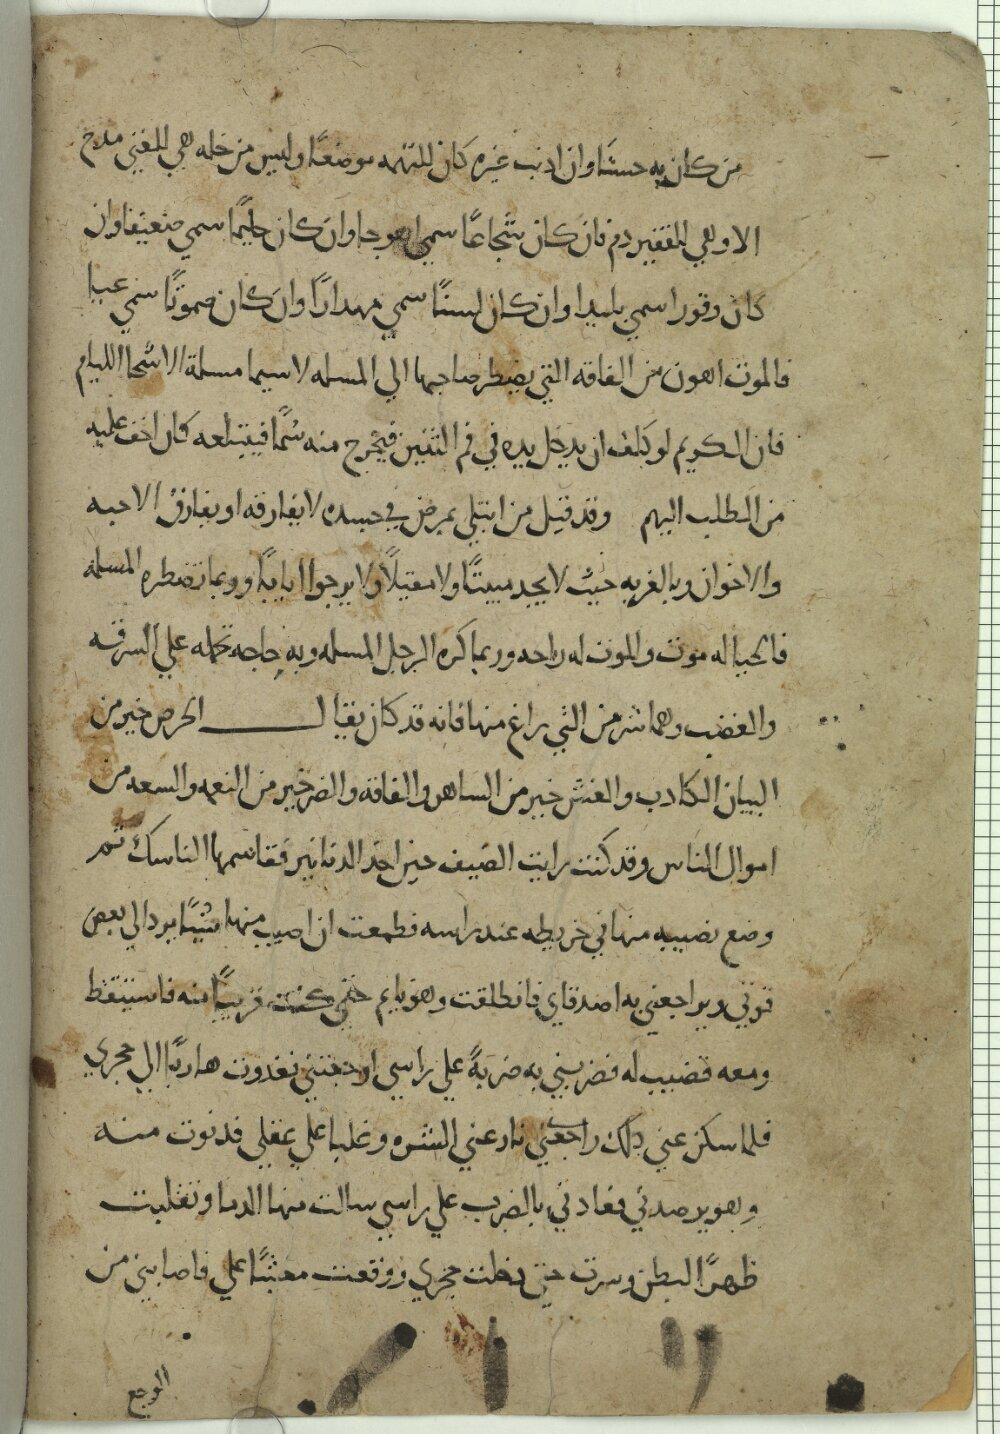 من كان به حسنا وان اذنب غيره كان للتهمه موضعًا وليس من خله هي للغني مدح
الا وهي للفقير دم فان كان شجاعًا سمي اهوجا وان كان حليمًا سمي ضعيفا وان
كان وقورا سمي بليدا وان كان لسنًا سمي مهدارًا وان كان صموتًا سمي عييا
فالموت اهون من الفاقه التي يضطر صاحبها الي المسله لا سيما مسلة الاشحا الليام
فان الكريم لو كلف ان يدخل يده في فم التنين فيخرج منه سُمًا فيبتلعه كان اخف عليه
من الطلب اليهم وقد قيل من ابتلي بمرض في جسده لا يفارقه او بفارق الاحبه
والاخوان وبالغربه حيث لا يجد مبيتًا ولا مقيلًا ولا يرجوا ايابًا وربما تضطره المسله
فالحيا له موت والموت له راحه وربما كره الرجل المسله وبه حاجه تحمله علي السرقه
والغضب وهما شر من التي راغ منها فانه قد كان يقال الخرس خير من
البيان الكادب والغش خير من الساهر والفاقه والضر خير من النعمه والسعه من
اموال الناس وقد كنت رايت الضيف حين اخذ الدنانير فقاسمها الناسك ثم
وضع نصيبه منها في خريطه عند راسه فطمعت ان اصيب منها شيًا يرد الي بعض
قوتي ويراجعني به اصدقاي فانطلقت وهو نايم حتي كنت قريبًا منه فاستيقظ
ومعه قضيب له فضربني به ضربةً علي راسي اوجعتني فغدوت هاربًا الي جحري
فلما سكن عني ذلك راجعني نازعني الشره وغلبا علي عقلي فدنوت منه
وهو يرصدني فعادني بالضرب علي راسي سالت منها الدما وتقلبت
ظهرًا لبطن وسرت حتي دخلت جحري ووقعت مغشيًا علي فاصابني من
الوجع